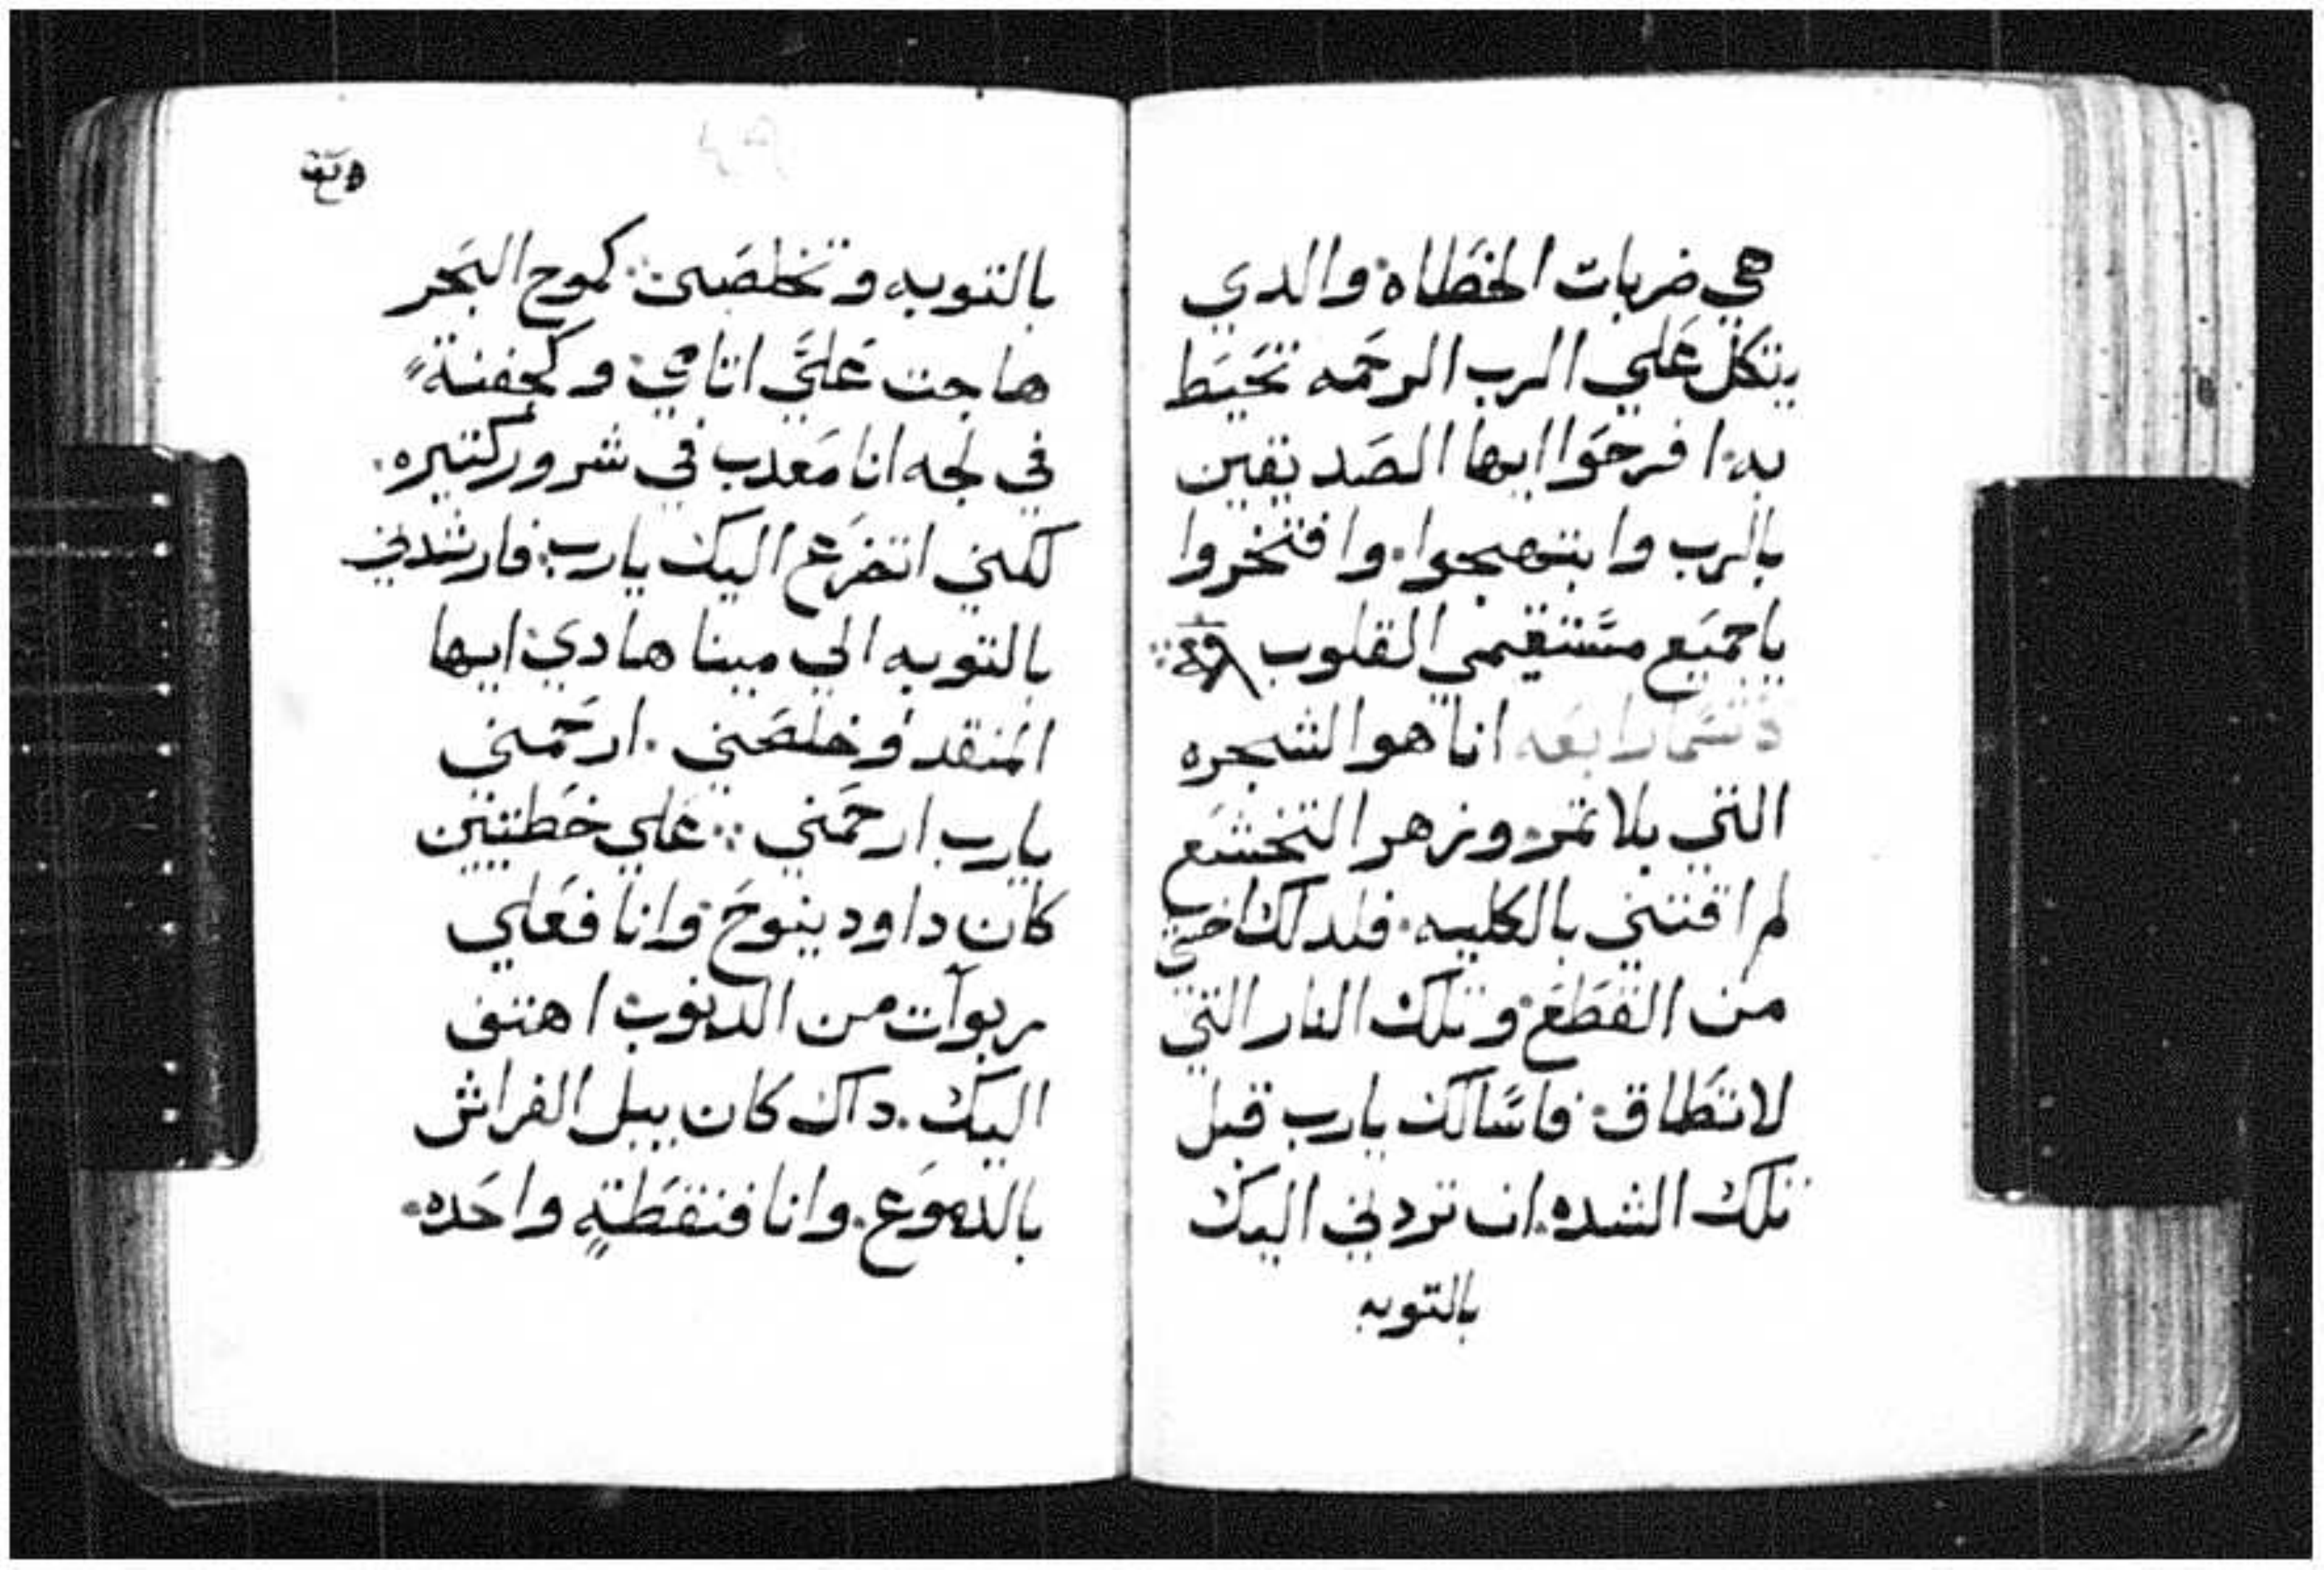 هي ضربات الخطاه والدي
يتكل علي الرب الرحمه تحيط
به افرحوا ايها الصديقين
بالرب وابتهجوا وافتخروا
ياجميع مستقيمي القلوب
رابعه انا هو الشجره
التي بلا تمر وزهر التخشع
لم اقتني بالكليه فلدلك اخشي
من القطع وتلك النار التي
لا تطاق فاسالك يارب قبل
تلك الشده ان تردني اليك
بالتوبه
بالتوبه وتخلصني كموج البحر
هاجت علي اتامي وكجفنة
في لجه انا معدب في شرور كتيره
لكني اتضرع اليك يارب فارشدني
بالتوبه الي مينا هادي ايها
المنقد وخلصني ارحمني
يارب ارحمني علي خطتيين
كان داود ينوح وانا فعلي
ربوات من الدنوب اهتف
اليك داك كان يبل الفراش
بالدموع وانا فنقطة واحده